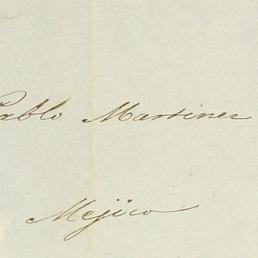 Pablo Martinez
Mejico